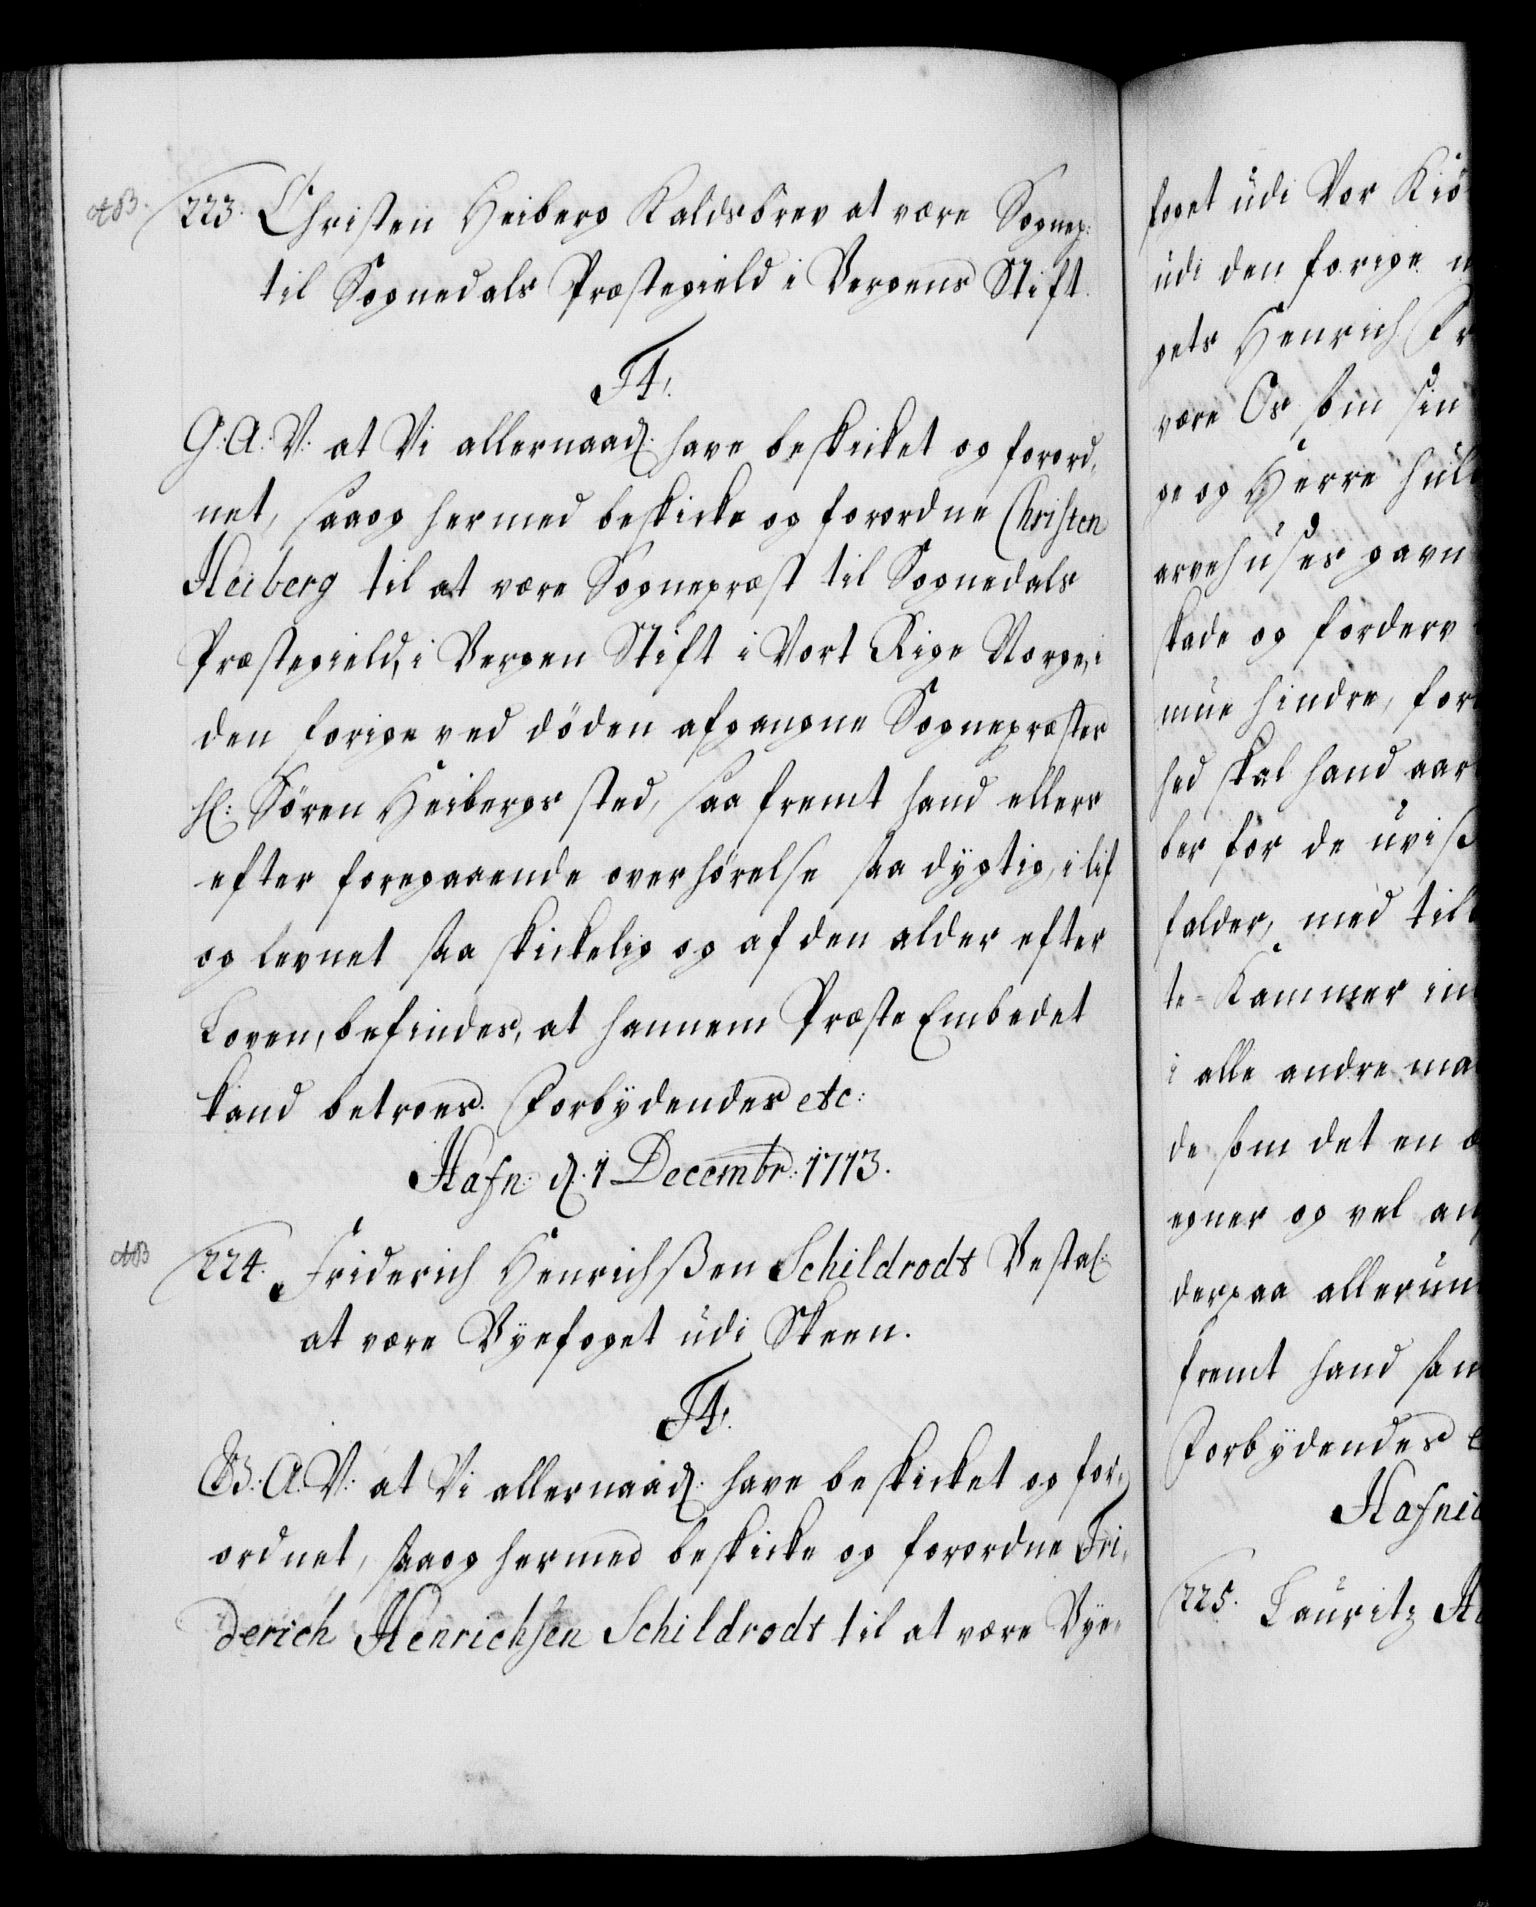 AB. 223. Christen Heiberg Kaldsbrev at være Sognep:
til Sognedals Præstegield i Bergens Stift.
F4.
G: A: V: at Vi allernaad: have beskicket og forord,
net, saaog hermed beskicke og forordne Christen
Heiberg til at være Sognepræst til Sognedals
Præstegield, i Bergen Stift i Vort Rige Norge, i
den forige ved döden afgangne Sognepræstes
Hr: Sören Heibergs sted, saa fremt hand ellers
efter foregaaende overhörelse saa dygtig, i lif
og levnet saa skickelig og af den alder efter
Loven, befindes, at hannem Præste Embedet
kand betroes. Forbydendes etc:
Hafn: d. 1 Decembr: 1713.
AB 224. Friderich Henrichßen Schildrodt Bestal:
at være Byefoget udi Skeen.
F4.
G: A: V: at Vi allernaad: have beskicket og for,
ordnet, saaog hermed beskicke og forordne Fri,
derich Henrichsen Schildrodt til at være Bye,
foget udi Vor Kiö
udi den forige
gets Henrich Fr
være Os som sin
ge og Herre hul
arvehuses gavn
skade og forderv
mue hindre, for
hed skal hand aar
ber for de uviß
falder, med til
te-Kammer in
i alle andre ma
de som det en
egner og vel an
derpaa allerun
fremt hand saa
Forbydendes e
Hafni
225. Lauritz